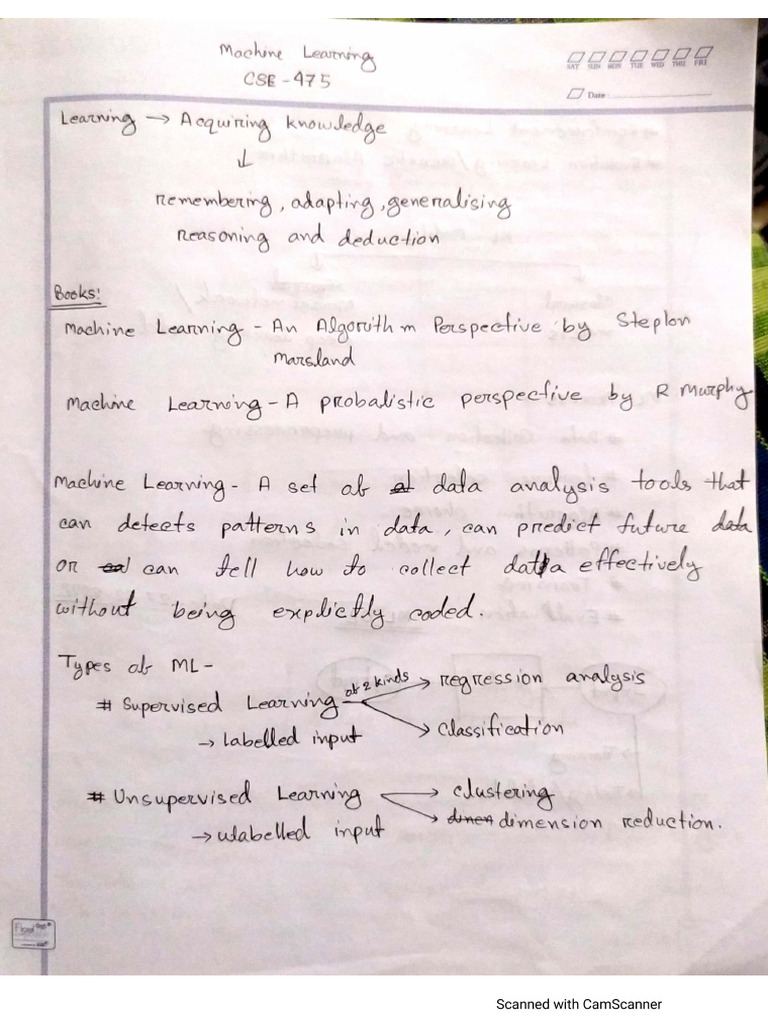 Machine Learning
CSE-475
SAT SUN MON TUE WED THU FRI
Date
Learning → Acquiring knowledge
↓
remembering, adapting, generalising
reasoning and deduction
Books:
Machine Learning - An Algorithm Perspective by Steplon
Marsland
Machine Learning - A probalistic perspective by R Murphy
Machine Learning - A set of data analysis tools that
can detects patterns in data, can predict future data
or can tell how to collect data effectively
without being explictly coded.
Types of ML -
# Supervised Learning of 2 kinds → regression analysis
→ labelled input → classification
# Unsupervised Learning → clustering
→ ulabelled input → dimension reduction.
Scanned with CamScanner